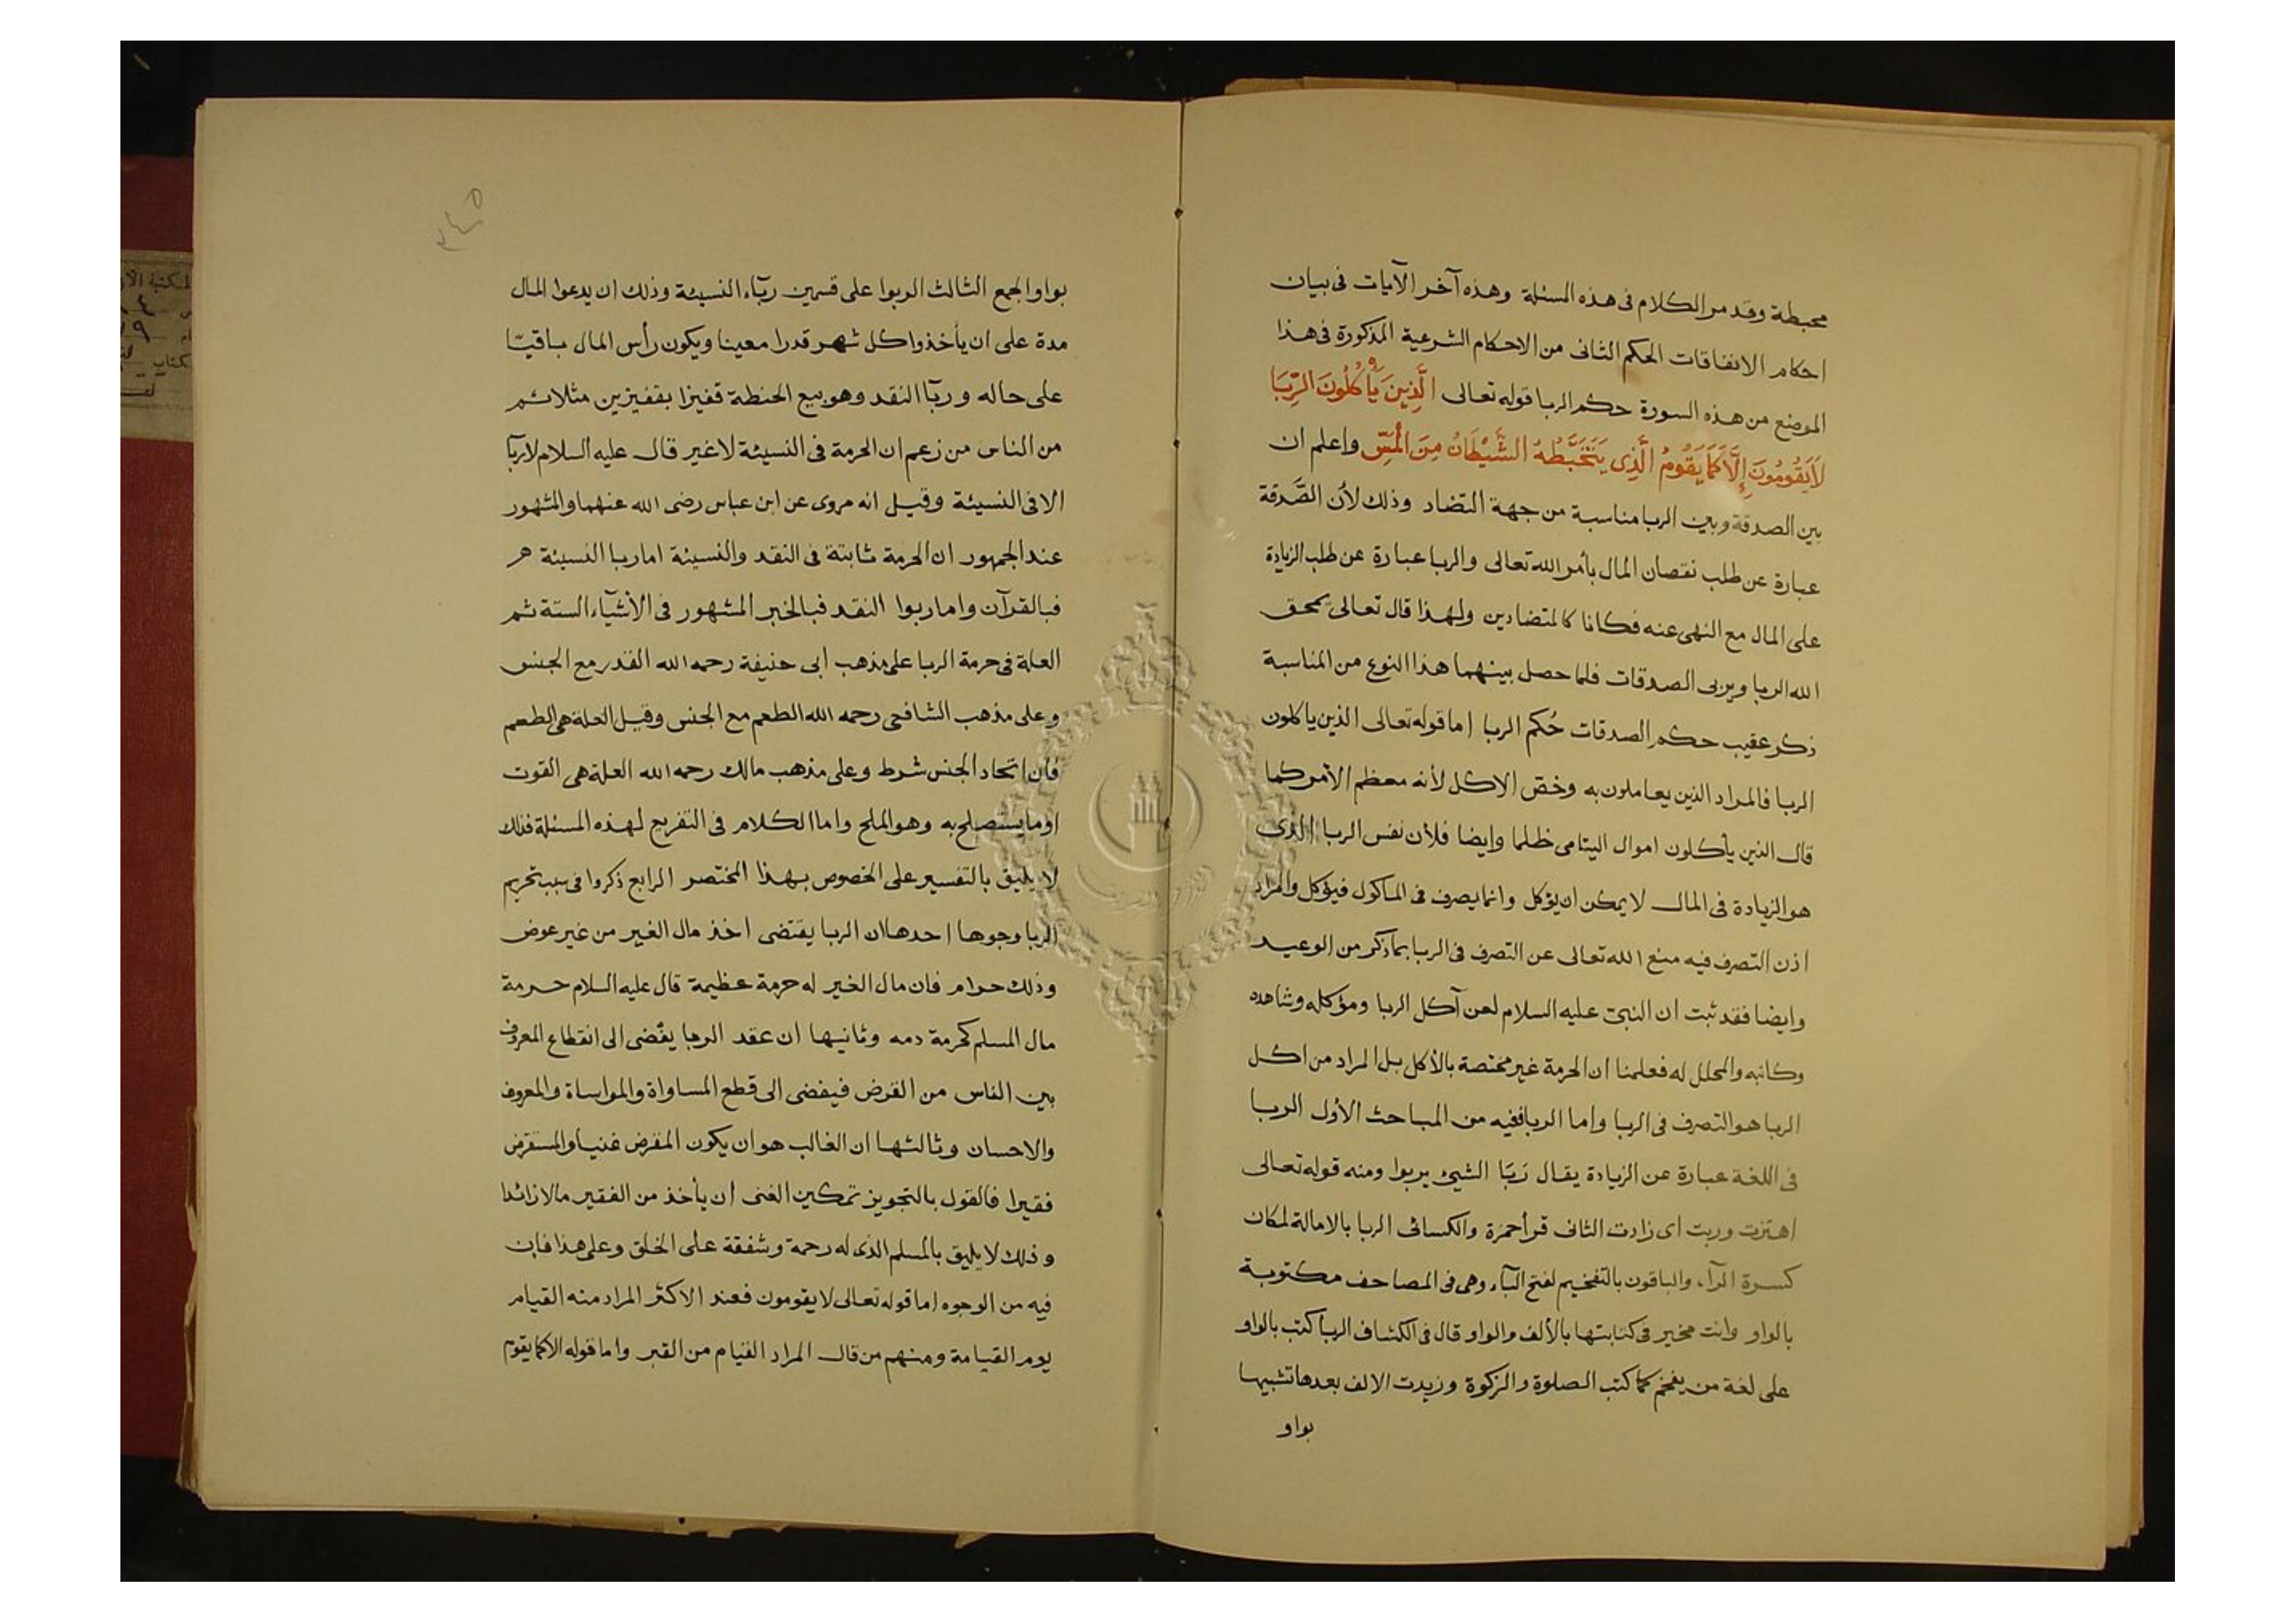 محبطة وقد مر الكلام فى هذه المسئلة وهذه آخر الآيات فى بيان
احكام الانفاقات الحكم الثانى من الاحكام الشرعية المذكورة فى هذا
الموضع من هذه السورة حكم الربا قوله تعالى الَّذِينَ يَأْكُلُونَ الرِّبَا
لَا يَقُومُونَ إِلَّا كَمَا يَقُومُ الَّذِى يَتَخَبَّطُهُ الشَّيْطَانُ مِنَ الْمَسِّ واعلم ان
بين الصدقة وبين الربا مناسبة من جهة التضاد وذلك لأن الصَّدقة
عبارة عن طلب نقصان المال بأمر الله تعالى والربا عبارة عن طلب الزيادة
على المال مع النهى عنه فكانا كالمتضادين ولهذا قال تعالى يمحق
الله الربا ويربى الصدقات فلما حصل بينهما هذا النوع من المناسبة
ذكر عقيب حكم الصدقات حُكم الربا اما قوله تعالى الذين ياكلون
الربا فالمراد الذين يعاملون به وخصّ الاكل لأنه معظم الأمر كما
قال الذين يأكلون اموال اليتامى ظلما وايضا فلأن نفس الربا الذى
هو الزيادة فى المال لا يمكن ان يؤكل وانما يصرف فى الماكول فيؤكل والمراد
اذن التصرف فيه منع الله تعالى عن التصرف فى الربا بما ذكر من الوعيد
وايضا فقد ثبت ان النبىّ عليه السلام لعن آكل الربا ومؤكله وشاهده
وكاتبه والمحلل له فعلمنا ان الحرمة غير مختصة بالأكل بل المراد من اكل
الربا هو التصرف فى الربا واما الربا ففيه من المباحث الأول الربا
فى اللغة عبارة عن الزيادة يقال رَبَا الشيئ يربوا ومنه قوله تعالى
اهتزت وربت اى زادت الثانى قرأ حمزة والكسائى الربا بالامالة لمكان
كسرة الرآء والباقون بالتفخيم لفتح البآء وهى فى المصاحف مكتوبة
بالواو وانت مخير فى كتابتها بالألف والواو قال فى الكشاف الربا كتب بالواو
على لغة من يفخم كما كتب الصلوة والزكوة وزيدت الالف بعدها تشبيها
بواو
٣٤٥
بواو الجمع الثالث الربوا على قسمين ربآء النسيئة وذلك ان يدعوا المال
مدة على ان يأخذوا كل شهر قدرا معينا ويكون رأس المال باقيا
على حاله وربآ النقد وهو بيع الحنطة قفيزا بقفيزين مثلا ثم
من الناس من زعم ان الحرمة فى النسيئة لا غير قال عليه السلام لا ربآ
الا فى النسيئة وقيل انه مروى عن ابن عباس رضى الله عنهما والمشهور
عند الجمهور ان الحرمة ثابتة فى النقد والنسيئة اما ربا النسيئة هر
فبالقرآن واما ربوا النقد فبالخبر المشهور فى الأشيآء الستة ثم
العلة فى حرمة الربا على مذهب ابى حنيفة رحمه الله القدر مع الجنس
وعلى مذهب الشافعى رحمه الله الطعم مع الجنس وقيل العلة هى الطعم
فان اتحاد الجنس شرط وعلى مذهب مالك رحمه الله العلة هى القوت
او ما يستصلح به وهو الملح واما الكلام فى التفريع لهذه المسئلة فذلك
لا يليق بالتفسير على الخصوص بهذا المختصر الرابع ذكروا فى سبب تحريم
الربا وجوها احدها ان الربا يقتضى اخذ مال الغير من غير عوض
وذلك حرام فان مال الغير له حرمة عظيمة قال عليه السلام حرمة
مال المسلم كحرمة دمه وثانيها ان عقد الربا يفضى الى انقطاع المعروف
بين الناس من القرض فيفضى الى قطع المساواة والمواساة والمعروف
والاحسان وثالثها ان الغالب هو ان يكون المقرض غنيا والمستقرض
فقيرا فالقول بالتجويز تمكين الغنى ان يأخذ من الفقير مالا زائدا
وذلك لا يليق بالمسلم الذى له رحمة وشفقة على الخلق وعلى هذا فان
فيه من الوجوه اما قوله تعالى لا يقومون فعند الاكثر المراد منه القيام
يوم القيامة ومنهم من قال المراد القيام من القبر واما قوله الا كما يقوم